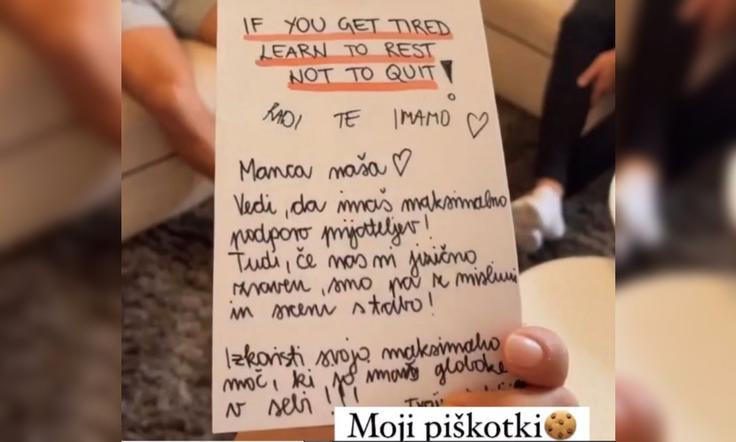 IF YOU GET TIRED
LEARN TO REST
NOT TO QUIT!
RADI TE IMAMO ♡
Manca naša ♡
Vedi, da imaš maksimalno
podporo prijateljev!
Tudi, če nas ni fizično
zraven, smo pa z mislimi
in srcem s tabo!
Izkoristi svojo maksimalno
moč, ki jo imaš globoko
v sebi!!!
Moji piškotki🍪